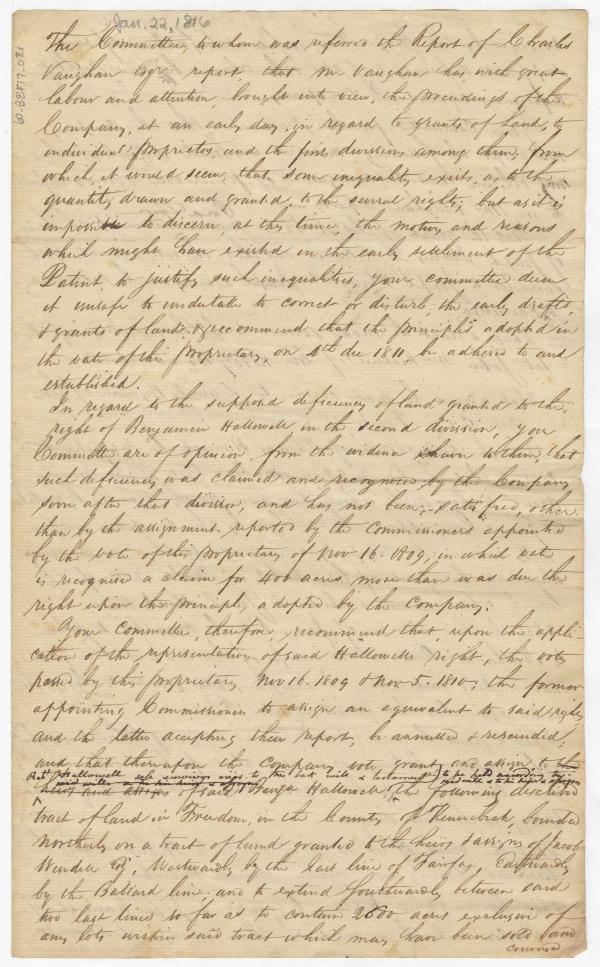 Jan. 22, 1816
60-BEF17-021
The Committee, to whom was referred the Report of Charles
Vaughan Esqr report, that Mr Vaughan has, with great
labour and attention, brought into view, the proceedings of the
Company, at an early day, in regard to grants of Land, to
individual Proprietors, and the first divisions among them; from
which, it would seem, that some inequality exists, as to the
quantity drawn and granted, to the several rights; but as it is
impossible to discern, at this time, the motives and reasons
which might have existed in the early settlement of the
Patent, to justify such inequalities, your committee deem
it unsafe to undertake to correct or disturb, the early drafts,
& grants of land, & recommend that the principles adopted in
the vote of this Proprietary, on 4th Dec 1811, be adhered to and
established.
In regard to the supposed deficiency of land granted to the
right of Benjamin Hallowell in the second division, your
Committee are of opinion, from the evidence shewn to them, that
such deficiency was claimed and recognized by the Company
soon after that division, and has not been satisfied, other
than by the assignment reported by the Commissioners appointed
by the vote of this Proprietary of Nov 16. 1809, in which vote
is recognised a claim for 400 acres, more than was due the
right upon the principle, adopted by the Company.
Your Committee, therefore, recommend that, upon the appli-
cation of the representatives of said Hallowells right, the votes
passed by this Proprietary Nov 16. 1809 & Nov. 5. 1810; the former
appointing Commissioners to assign an equivalent to said right,
and the latter accepting their report, be annulled & rescinded;
and that thereupon the Company vote, grant, and assign, to the
Hallowell sole surviving to the last will & testament to be held according to
said will
heirs and assigns of said Benja Hallowell the following described
tract of land in Freedom, in the County of Kennebeck, bounded
Northerly on a tract of land granted to the heirs & assigns of Jacob
Wendell Esq, Westwardly by the last line of Fairfax, Eastwardly
by the Ballard line; and to extend Southwardly between said
two last lines so far as to contain 2600 acres exclusive of
any lots within said tract which may have been sold and